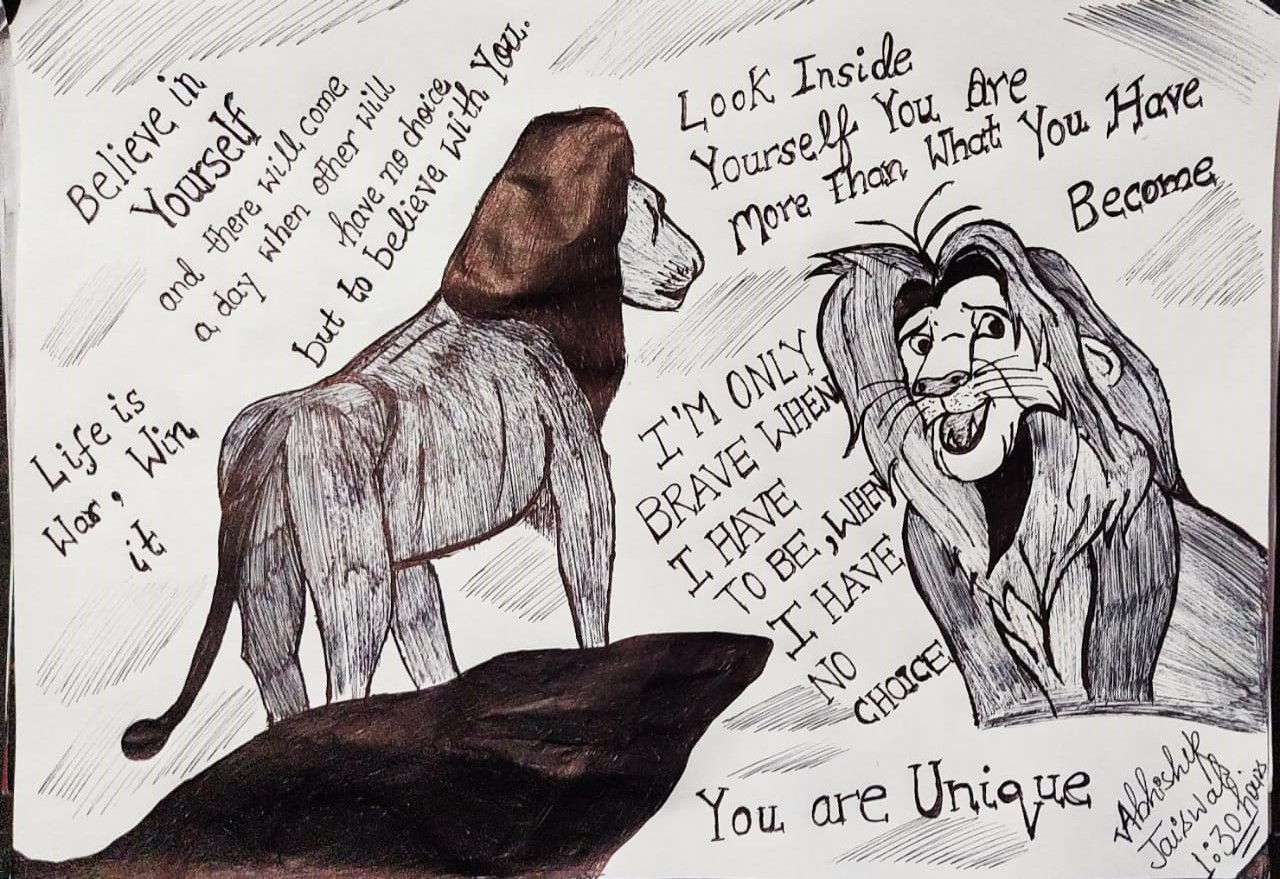 Believe in
Yourself
and there will come
a day when other will
have no choice
but to believe with You.
Life is
War, Win
it
Look Inside
Yourself You Are
More Than What You Have
Become
I'M ONLY
BRAVE WHEN
I HAVE
TO BE, WHEN
I HAVE
NO
CHOICE
You are Unique
Abhishek
Jaiswal
1:30 hours